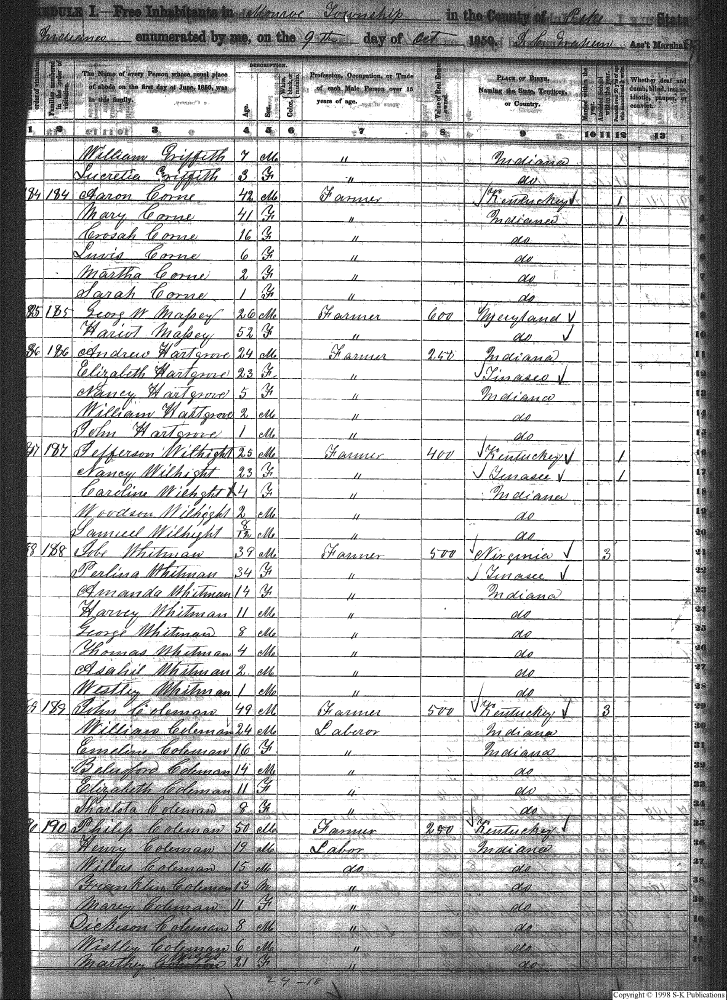 SCHEDULE I.—Free Inhabitants in Monroe Township in the County of Pike State
Indiana enumerated by me, on the 9th day of Oct 1850. Ass't Marshal
The Name of every Person whose usual place of abode on the first day of June, 1850, was in this family.
DESCRIPTION.
Age. Sex. Color,
Profession, Occupation, or Trade of each Male Person over 15 years of age.
Value of Real Estate
PLACE OF BIRTH. Naming the State, Territory, or Country.
Whether deaf and dumb, blind, insane, idiotic, pauper, or convict.
1 2 3 4 5 6 7 8 9 10 11 12 13
William Griffith 7 M " Indiana
Lucretia Griffith 3 F " do
184 184 Aaron Corne 42 M Farmer Kentucky 1
Mary Corne 41 F " Indiana 1
Crosah Corne 16 F " do
Luvis Corne 6 F " do
Martha Corne 2 F " do
Sarah Corne 1 F " do
185 185 Georg W Massey 26 M Farmer 600 Maryland
Hariot Massey 52 F " do
186 186 Andrew Hartgrove 24 M Farmer 250 Indiana
Elizabeth Hartgrove 23 F " Tinasee
Nancy Hartgrove 5 F " Indiana
William Hartgrove 2 M " do
John Hartgrove 1 M " do
187 187 Jefferson Wilhight 25 M Farmer 400 Kentucky 1
Nancy Wilhight 23 F " Tinasee 1
Caroline Wilhight 4 F " Indiana
Woodson Wilhight 2 M " do
Samuel Wilhight 8/12 M " do
188 188 John Whitman 39 M Farmer 500 Virginia 3
Perlina Whitman 34 F " Tinasee
Amanda Whitman 14 F " Indiana
Harvey Whitman 11 M " do
George Whitman 8 M " do
Thomas Whitman 4 M " do
Asahil Whitman 2 M " do
Westley Whitman 1 M " do
189 189 John Coleman 49 M Farmer 500 Kentucky 3
William Coleman 24 M Laberor Indiana
Emeline Coleman 16 F " Indiana
Coleman 14 M " do
Elizabeth Coleman 11 F " do
Coleman 8 F " do
190 190 Philip Coleman 50 M Farmer 250 Kentucky
Henry Coleman 19 M Labor Indiana
Coleman 15 M do do
Franklin Coleman 13 M " do
Marey Coleman 11 F " do
Dickeson Coleman 8 M " do
Wistley Coleman 6 M " do
Marthey 21 F " do
Copyright © 1998 S-K Publications